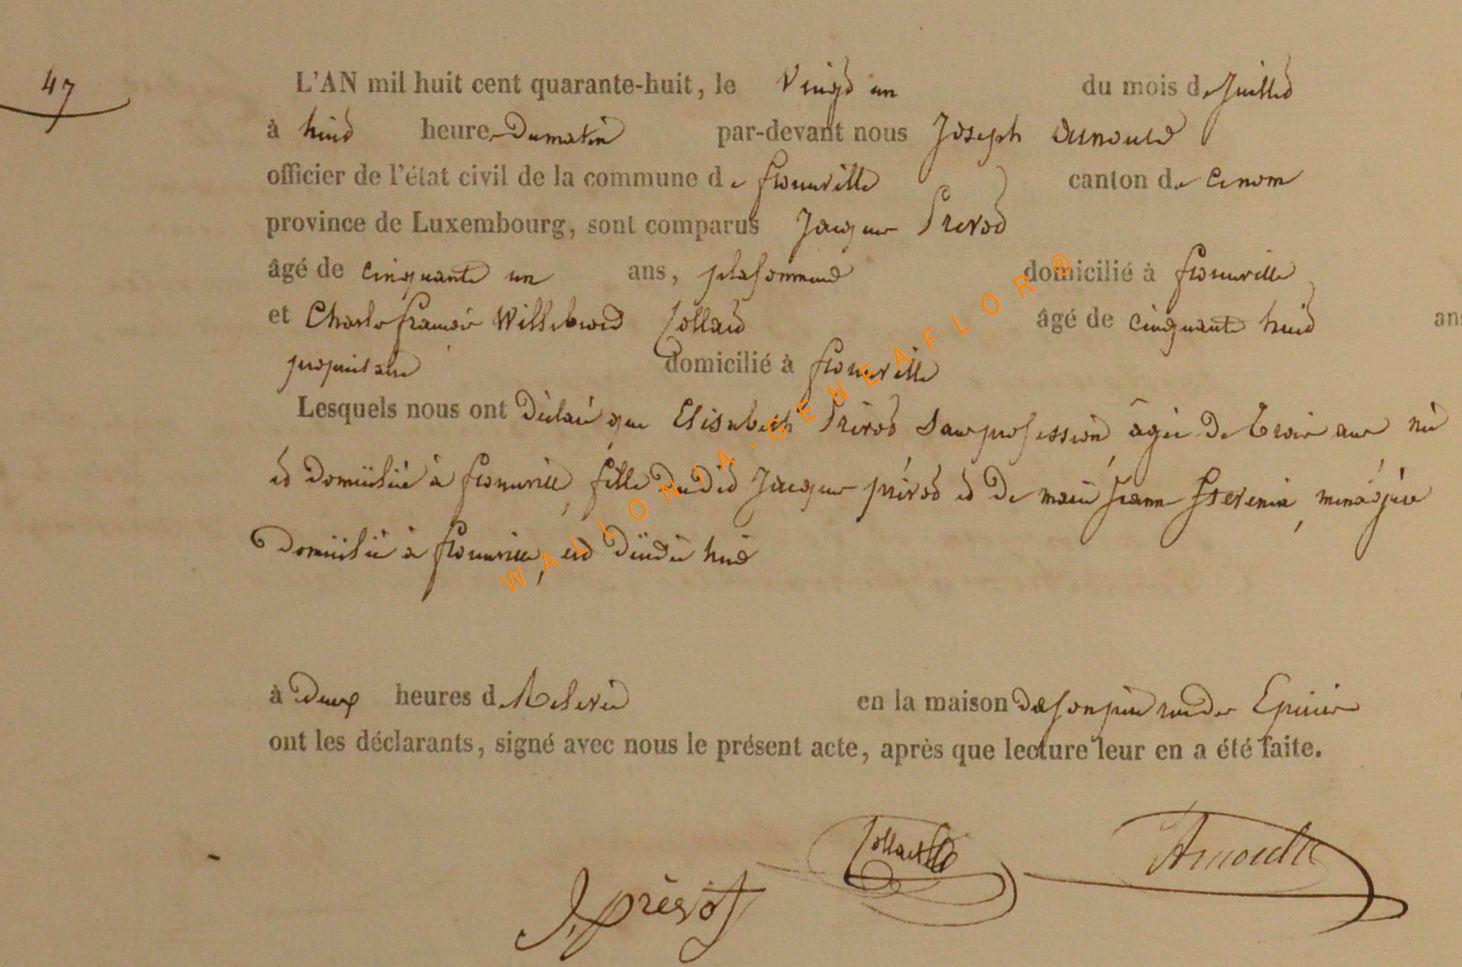 47
L'AN mil huit cent quarante-huit, le Vingt un du mois de Juillet
à huit heures Du matin par-devant nous Joseph Arnould
officier de l'état civil de la commune de florenville canton de
province de Luxembourg, sont comparus Jacques Prevot
âgé de Cinquante un ans, plafonneur domicilié à florenville
et Charles françois Willibrord Collard âgé de cinquante huit ans
propriétaire domicilié à florenville
Lesquels nous ont Déclaré que Elisabeth Prévot Sans profession âgée De trois ans née
et Domiciliée à florenville, fille Dudit Jacques prévot et De marie Jeanne, ménagère
Domiciliée à florenville, est Décédée
à Deux heures d en la maison De son père rue des Epiciers
ont les déclarants, signé avec nous le présent acte, après que lecture leur en a été faite.
Collard Arnould
J. prévot
WALLONIA-GENEAFLOR®